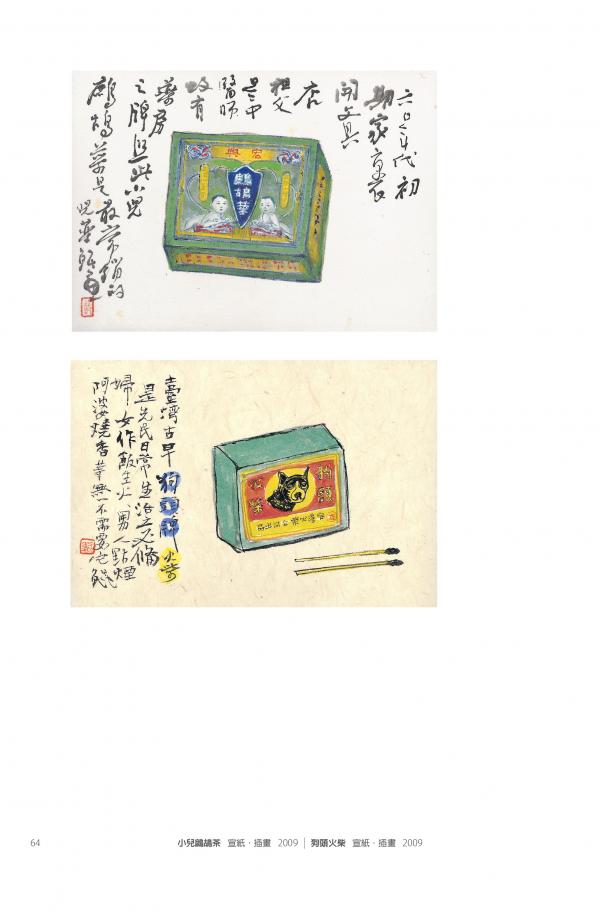 六〇年代初
期家裏
開文具
店
祖父
是中
醫師
故有
藥房
之牌照此小兒
鷓鴣菜是最常銷的
宏興
鷓鴣菜
臺灣古早狗頭牌火柴
是先民日常生活之必備
婦女作飯生火、男人點煙
阿婆燒香等無一不需要它
狗頭
火柴
64
小兒鷓鴣茶 宣紙・插畫 2009 | 狗頭火柴 宣紙・插畫 2009